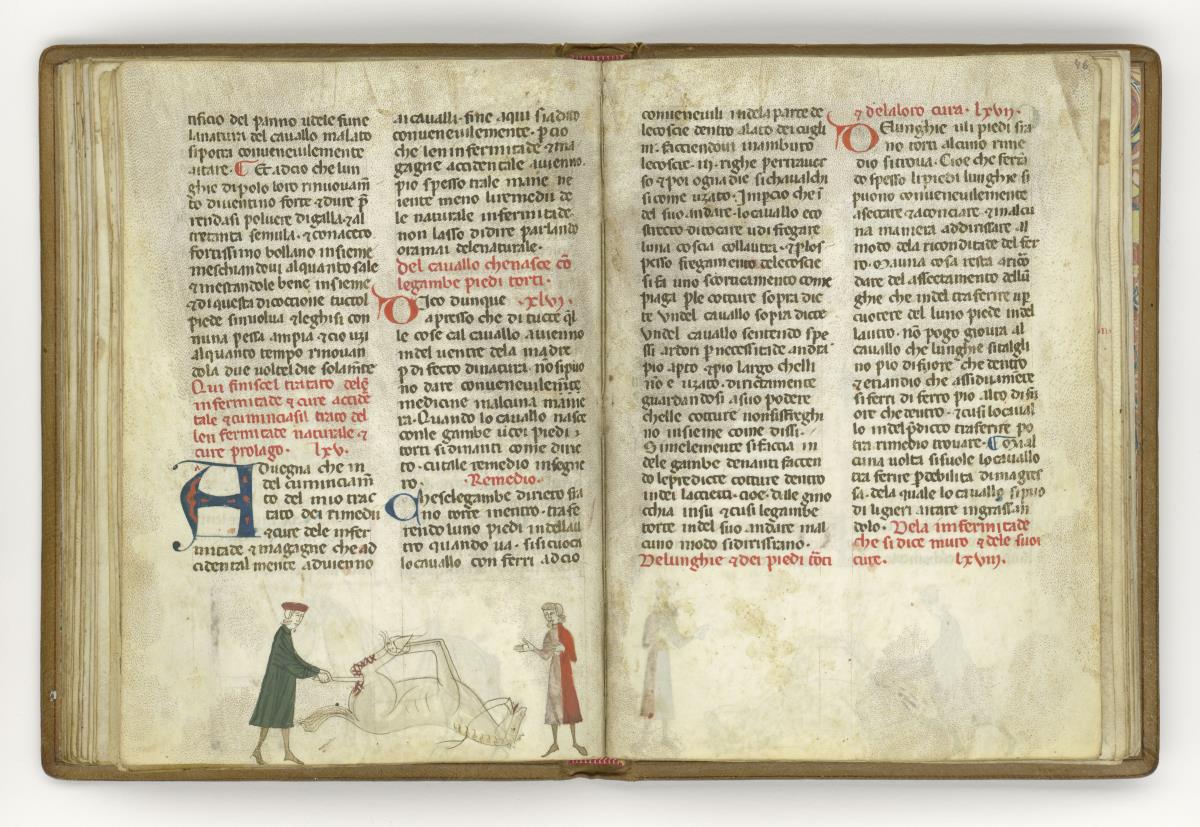 tificio del panno vdele fune
lanatura del cauallo malato
sipotra conueneuilemente
aitare. Et adcio che lun
ghie di polo loro rinuouam̄
to diuentino forte & dure p̄
rendasi poluere di galla. & al
tretanta semula. & conaceto
fortissimo bollano insieme
meschiandoui alquanto sale
& mestandole bene insieme
& di questa dicoctione tuctol
piede sinuolua & leghisi con
nuna pessa ampia & cio uzi
alquanto tempo rinouan
dola due uoltel die solam̄te
Qui finiscel tratato
infermitade & cure accide
tale & cuminciasil trato del
len fermitade naturale. &
cure prolago. lxv.
Aduegna che in
del cuminciam̄
to del mio trac
tato dei rimedii
& cure dele infer
mitade & magagne che ad
cidental mente aduienno
ai caualli. fine aqui sia dito
conueneuilemente. p cio
che len infermitade & ma
gagne accidentale auienno.
pio spesso trale mane ne
iente meno li remedii de
le naturale infermitade.
non lasso didire parlando
oramai dele naturale.
Del cauallo che nasce cō
legambe piedi torti.
Dico dunque xlvi.
apresso che di tucte q̄l
le cose cal cauallo auienno
indel uentre dela madre
p di fecto di natura. nō si puo
no dare conueneuilem̄te
medicine malcuna manie
ra. Quando lo cauallo nasce
conle gambe u coi piedi
torti di nanti come dirie
to. cu tale remedio insegne
ro. Remedio.
Che se legambe dirieto sta
no torte mentro. trafe
rendo luno piedi indellau
tro quando ua. si si cuoca
lo cauallo con ferri adcio
conueneuili indela parte de
le coscie dentro alato dei cugli
ni. facciendoui inamburo
le coscie. iii. righe per trauer
so & poi ogna die si chaualchi
si come uzato. Impcio che ī
del suo andare. lo cauallo eco
strecto ditocare u di fregare
luna coscia collautra. & p los
pesso fregamento dele coscie
si fa uno scorticamento come
piaga p le cotture sopra die
te Vndel cauallo sopra dicte
Vndel cauallo sentendo spe
ssi ardori p necessitade andra
pio apto & pio largo chelli
nō e uzato. dirictamente
guardandosi a suo podere
chelle cotture non si freghi
no insieme come dissi.
Simelemente si faccia in
dele gambe denanti faccen
do le predicte cotture dentro
indei laccieti. cioe. dalle gino
cchia insu & cusi legambe
torte indel suo andare mal
cuno modo si dirissrano.
Delunghie & dei piedi tōti
46
& delaloro cura. lxvii.
Delunghie u li piedi sia
no torti alcuno rime
dio si troua. Cioe che ferrā
do spesso li piedi lunghie si
puono conueneuilemente
assectare & aconciare. & inalcu
na maniera addirissare al
modo dela riconditade del fer
ro. Ma una cosa resta a ricō
dare del assectamento dellū
ghie che indel traferire u p
cuotere del luno piede indel
lautro. nō pogo gioua al
cauallo che lunghie si talgli
no pio di fuore che dentro
& etiandio che assiduamēte
si ferri di ferro pio alto di fu
ore che dentro. & cusi lo caual
lo indel p̄dicto traferire po
tra rimedio trouare. Ma al
cuna uolta si suole lo cauallo
tra ferire p debilita di magres
sa. dela quale lo cauallo si puo
di ligieri aitare ingrassan
dolo. Dela infermitade
che si dice muro & dele suoi
cure. lxviii.